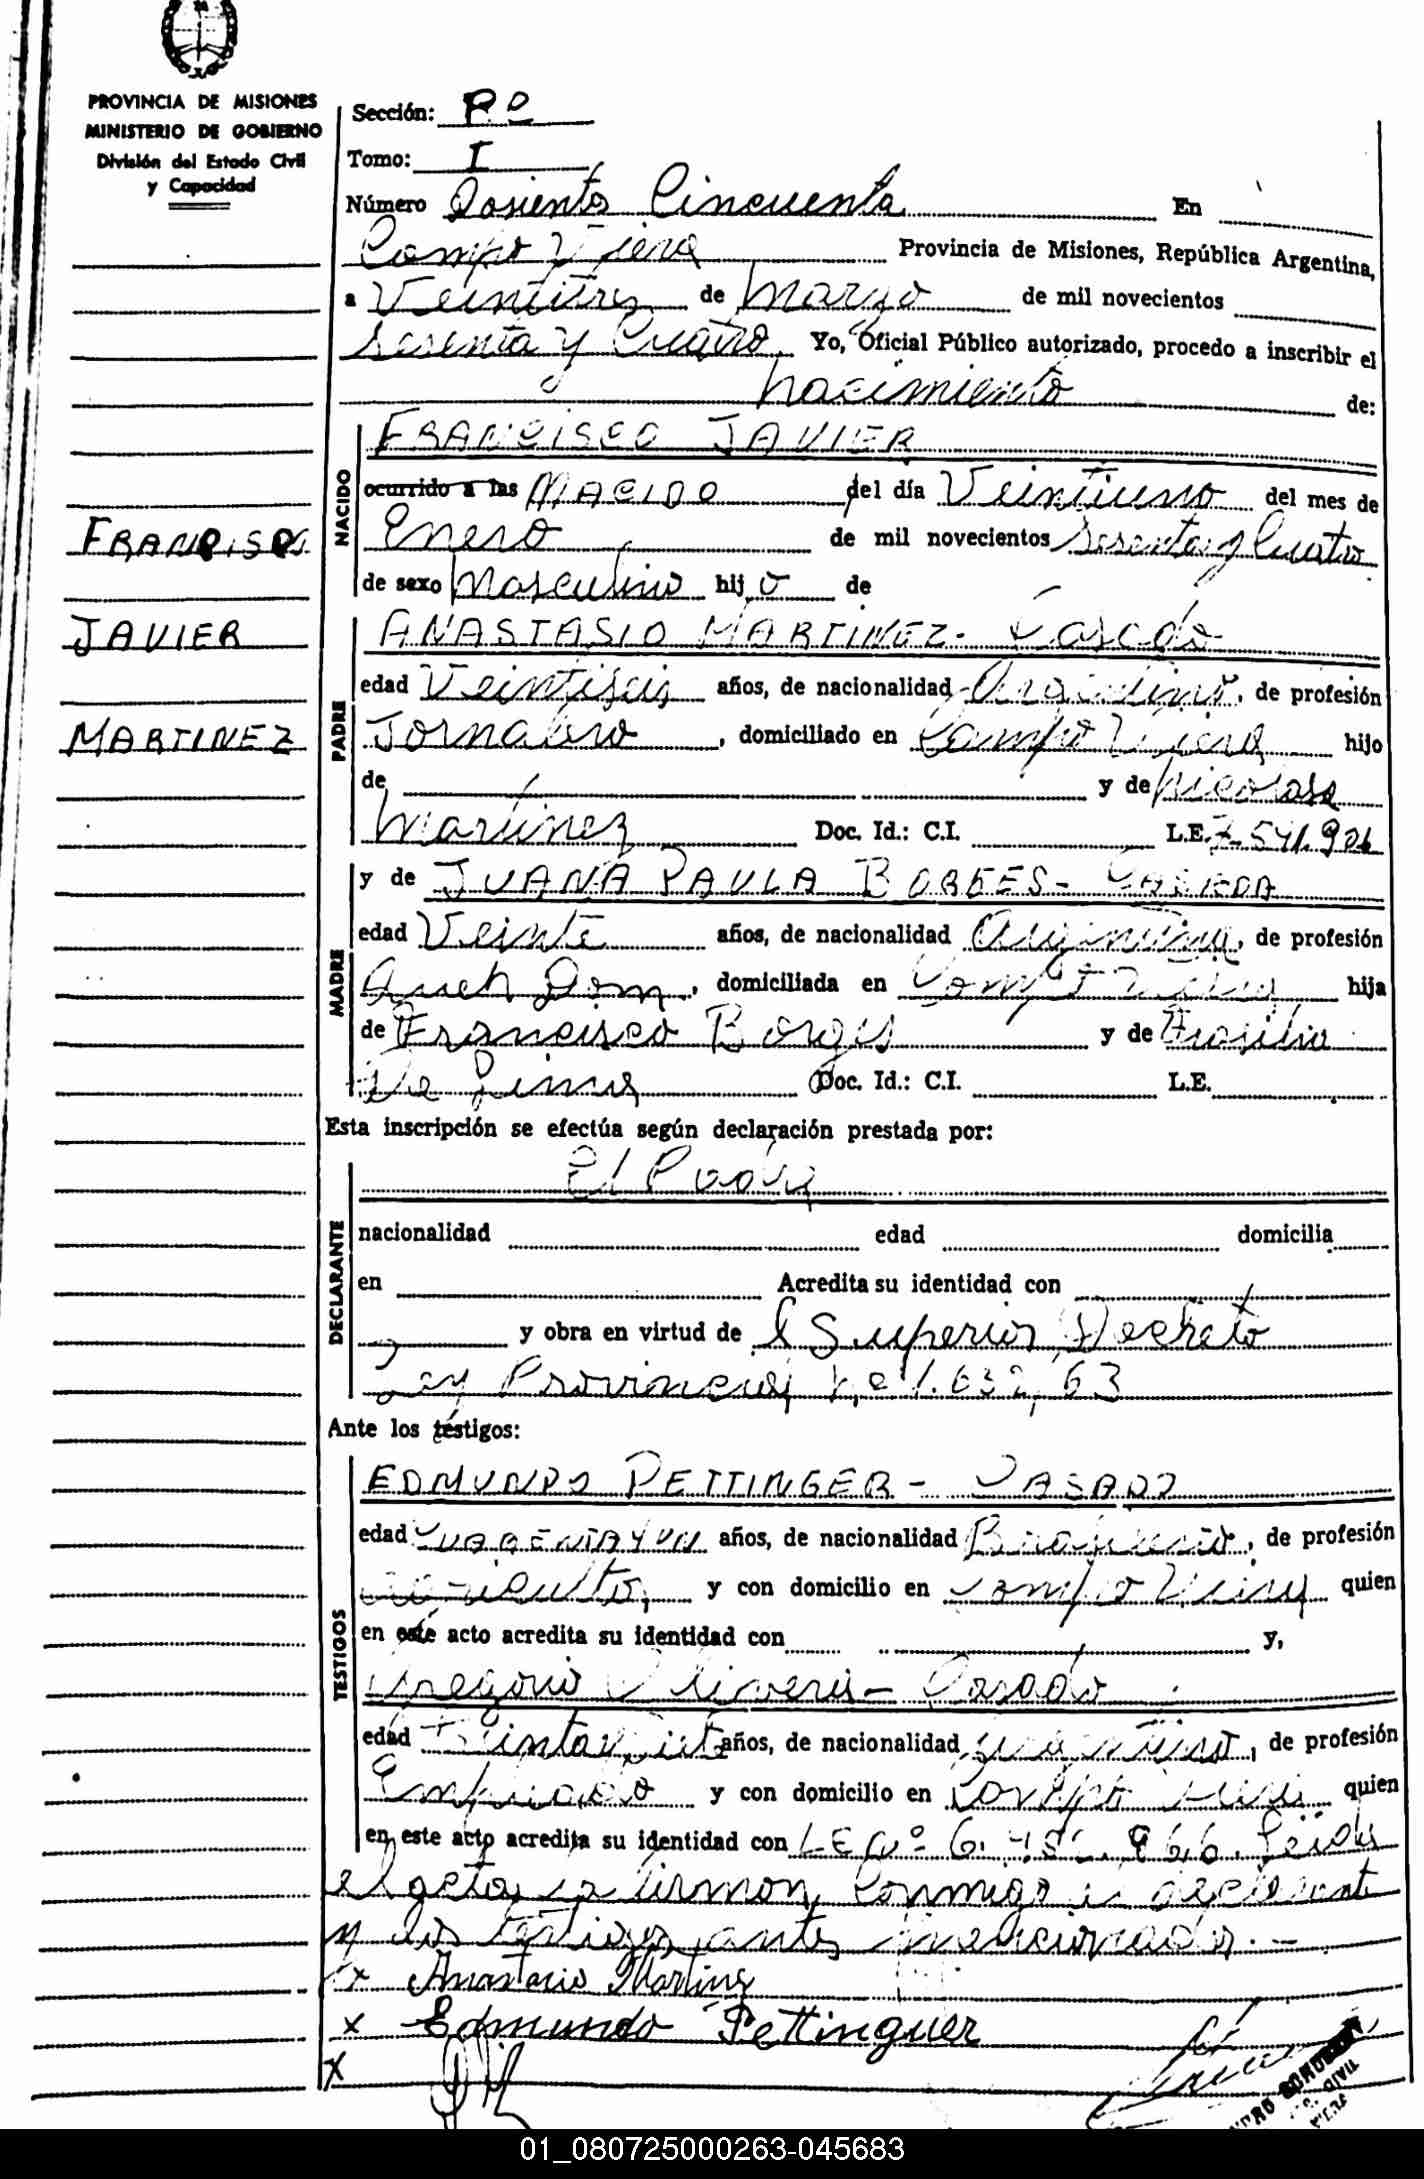 PROVINCIA DE MISIONES
MINISTERIO DE GOBIERNO
División del Estado Civil
y Capacidad
FRANCISCO
JAVIER
MARTINEZ
Sección: Pº
Tomo: I
Número Dosiento Cincuenta En
Campo Viera Provincia de Misiones, República Argentina,
a Veintitres de Marzo de mil novecientos
Sesenta y Cuatro Yo, Oficial Público autorizado, procedo a inscribir el
nacimiento de:
NACIDO
FRANCISCO JAVIER
ocurrido a las NACIDO del día Veintiuno del mes de
Enero de mil novecientos Sesenta y Cuatro
de sexo Masculino hijo de
PADRE
ANASTASIO MARTINEZ- Casado
edad Veintiseis años, de nacionalidad Argentino, de profesión
Jornalero, domiciliado en Campo Viera hijo
de y de Nicolasa
Martinez Doc. Id.: C.I. L.E. 7.541.906
MADRE
y de JUANA PAULA BORGES- CASADA
edad Veinte años, de nacionalidad Argentina, de profesión
Dom., domiciliada en Campo Viera hija
de Francisco Borges y de
De Lima Doc. Id.: C.I. L.E.
Esta inscripción se efectúa según declaración prestada por:
DECLARANTE
El Padre
nacionalidad edad domicilia
en Acredita su identidad con
y obra en virtud de l Superior Decreto
Ley Provincial Nº 1.632/63
Ante los testigos:
TESTIGOS
EDMUNDO PETTINGER - CASADO
edad CUARENTA Y UN años, de nacionalidad Brasileño, de profesión
agricultor, y con domicilio en Campo Viera quien
en este acto acredita su identidad con y,
Gregorio Olivera - Casado
edad Treinta y Siete años, de nacionalidad Argentino, de profesión
Empleado y con domicilio en Campo Viera quien
en este acto acredita su identidad con L E Nº 6. 966. Leida
el acta, la firman conmigo el declarante
y los testigos antes mencionados.-
x Anastacio Martinez
x Edmundo Pettinguer
x
01_080725000263-045683